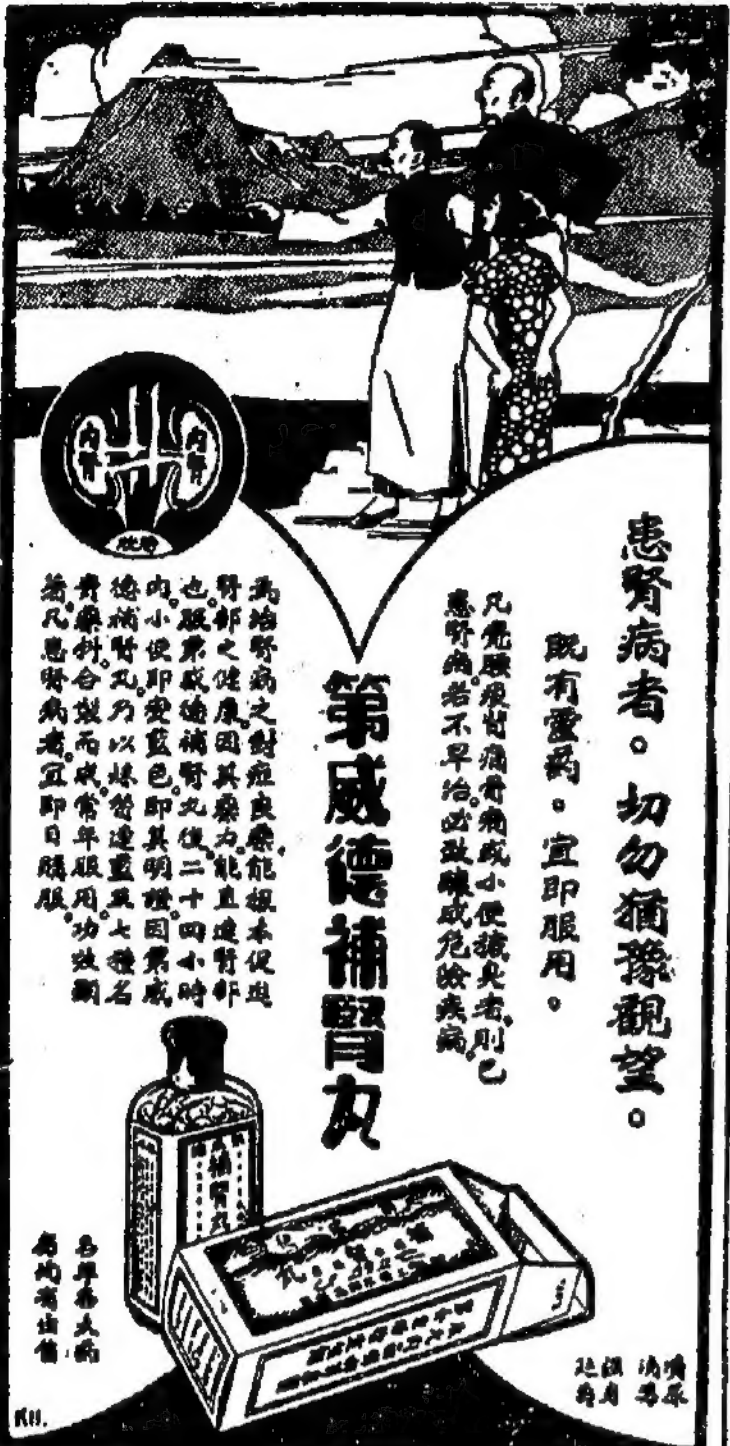 患腎病者。切勿猶豫觀望。
既有靈藥。宜即服用。
凡覺腰痠背痛骨痛或小便穢臭者則已
患腎病若不早治必致釀成危險疾病
第威德補腎丸
為治腎病之對症良藥能根本促進
腎部之健康因其藥力能直達腎部
也服第威德補腎丸後二十四小時
內小便即變藍色即其明證因第威
德補腎丸乃以
藍及七種名
貴藥料合製而成常年服用功效顯
著凡患腎病者宜即日購服
內腎
內腎
膀胱
補腎丸
名埠各大藥
房均有出售
KII.